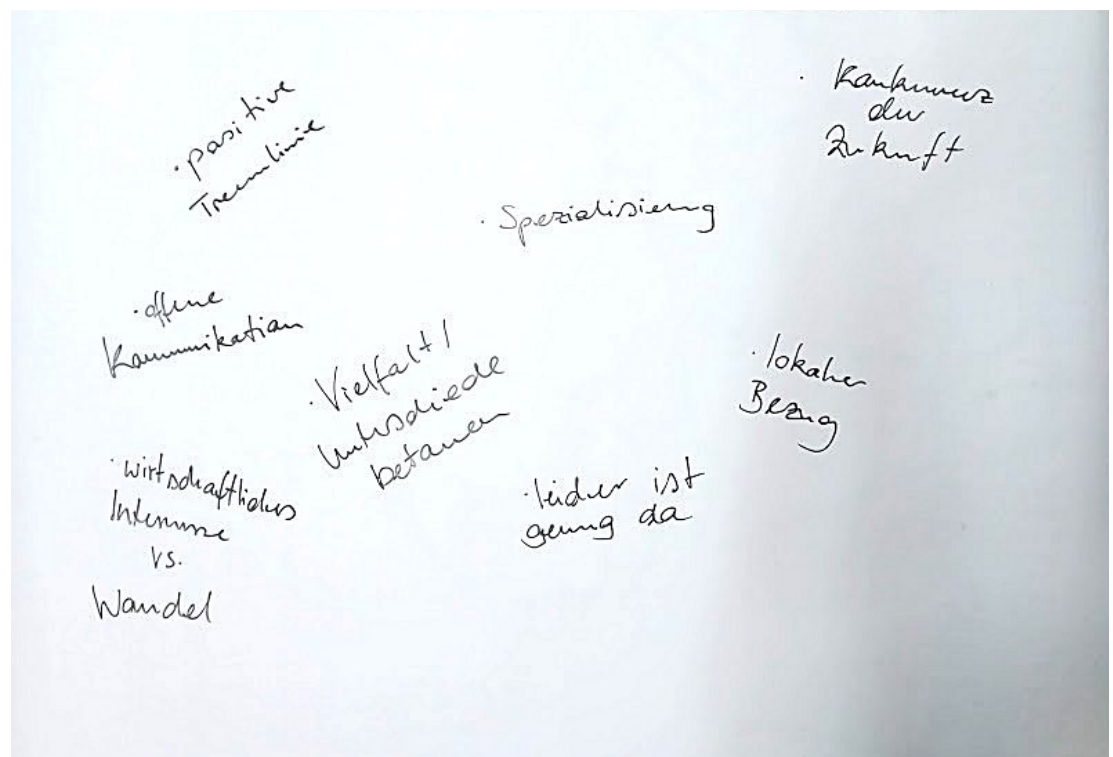 · positive
Trennlinie
· Konkurrenz
der
Zukunft
· Spezialisierung
· offene
Kommunikation
· Vielfalt /
Unterschiede
betonen
· lokaler
Bezug
· wirtschaftliches
Interesse
vs.
Wandel
· leider ist
genug da